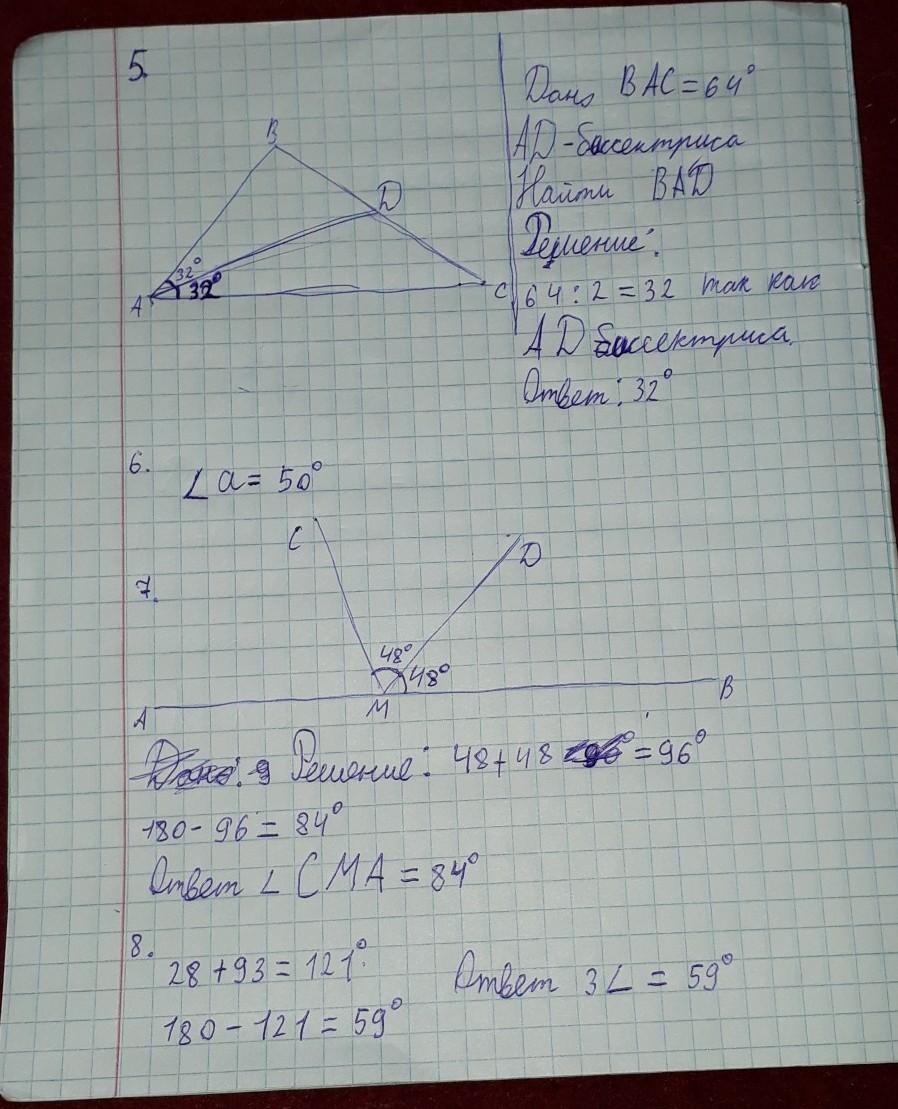 5.
B
D
32°
32°
A
C
Дано BAC = 64°
AD - биссектриса
Найти BAD
Решение:
64 : 2 = 32 так как
AD биссектриса.
Ответ: 32°
6.
∠a = 50°
C
D
7.
48°
48°
A
M
B
Решение: 48 + 48 = 96°
180 - 96 = 84°
Ответ ∠ CMA = 84°
8.
28 + 93 = 121°
Ответ 3∠ = 59°
180 - 121 = 59°